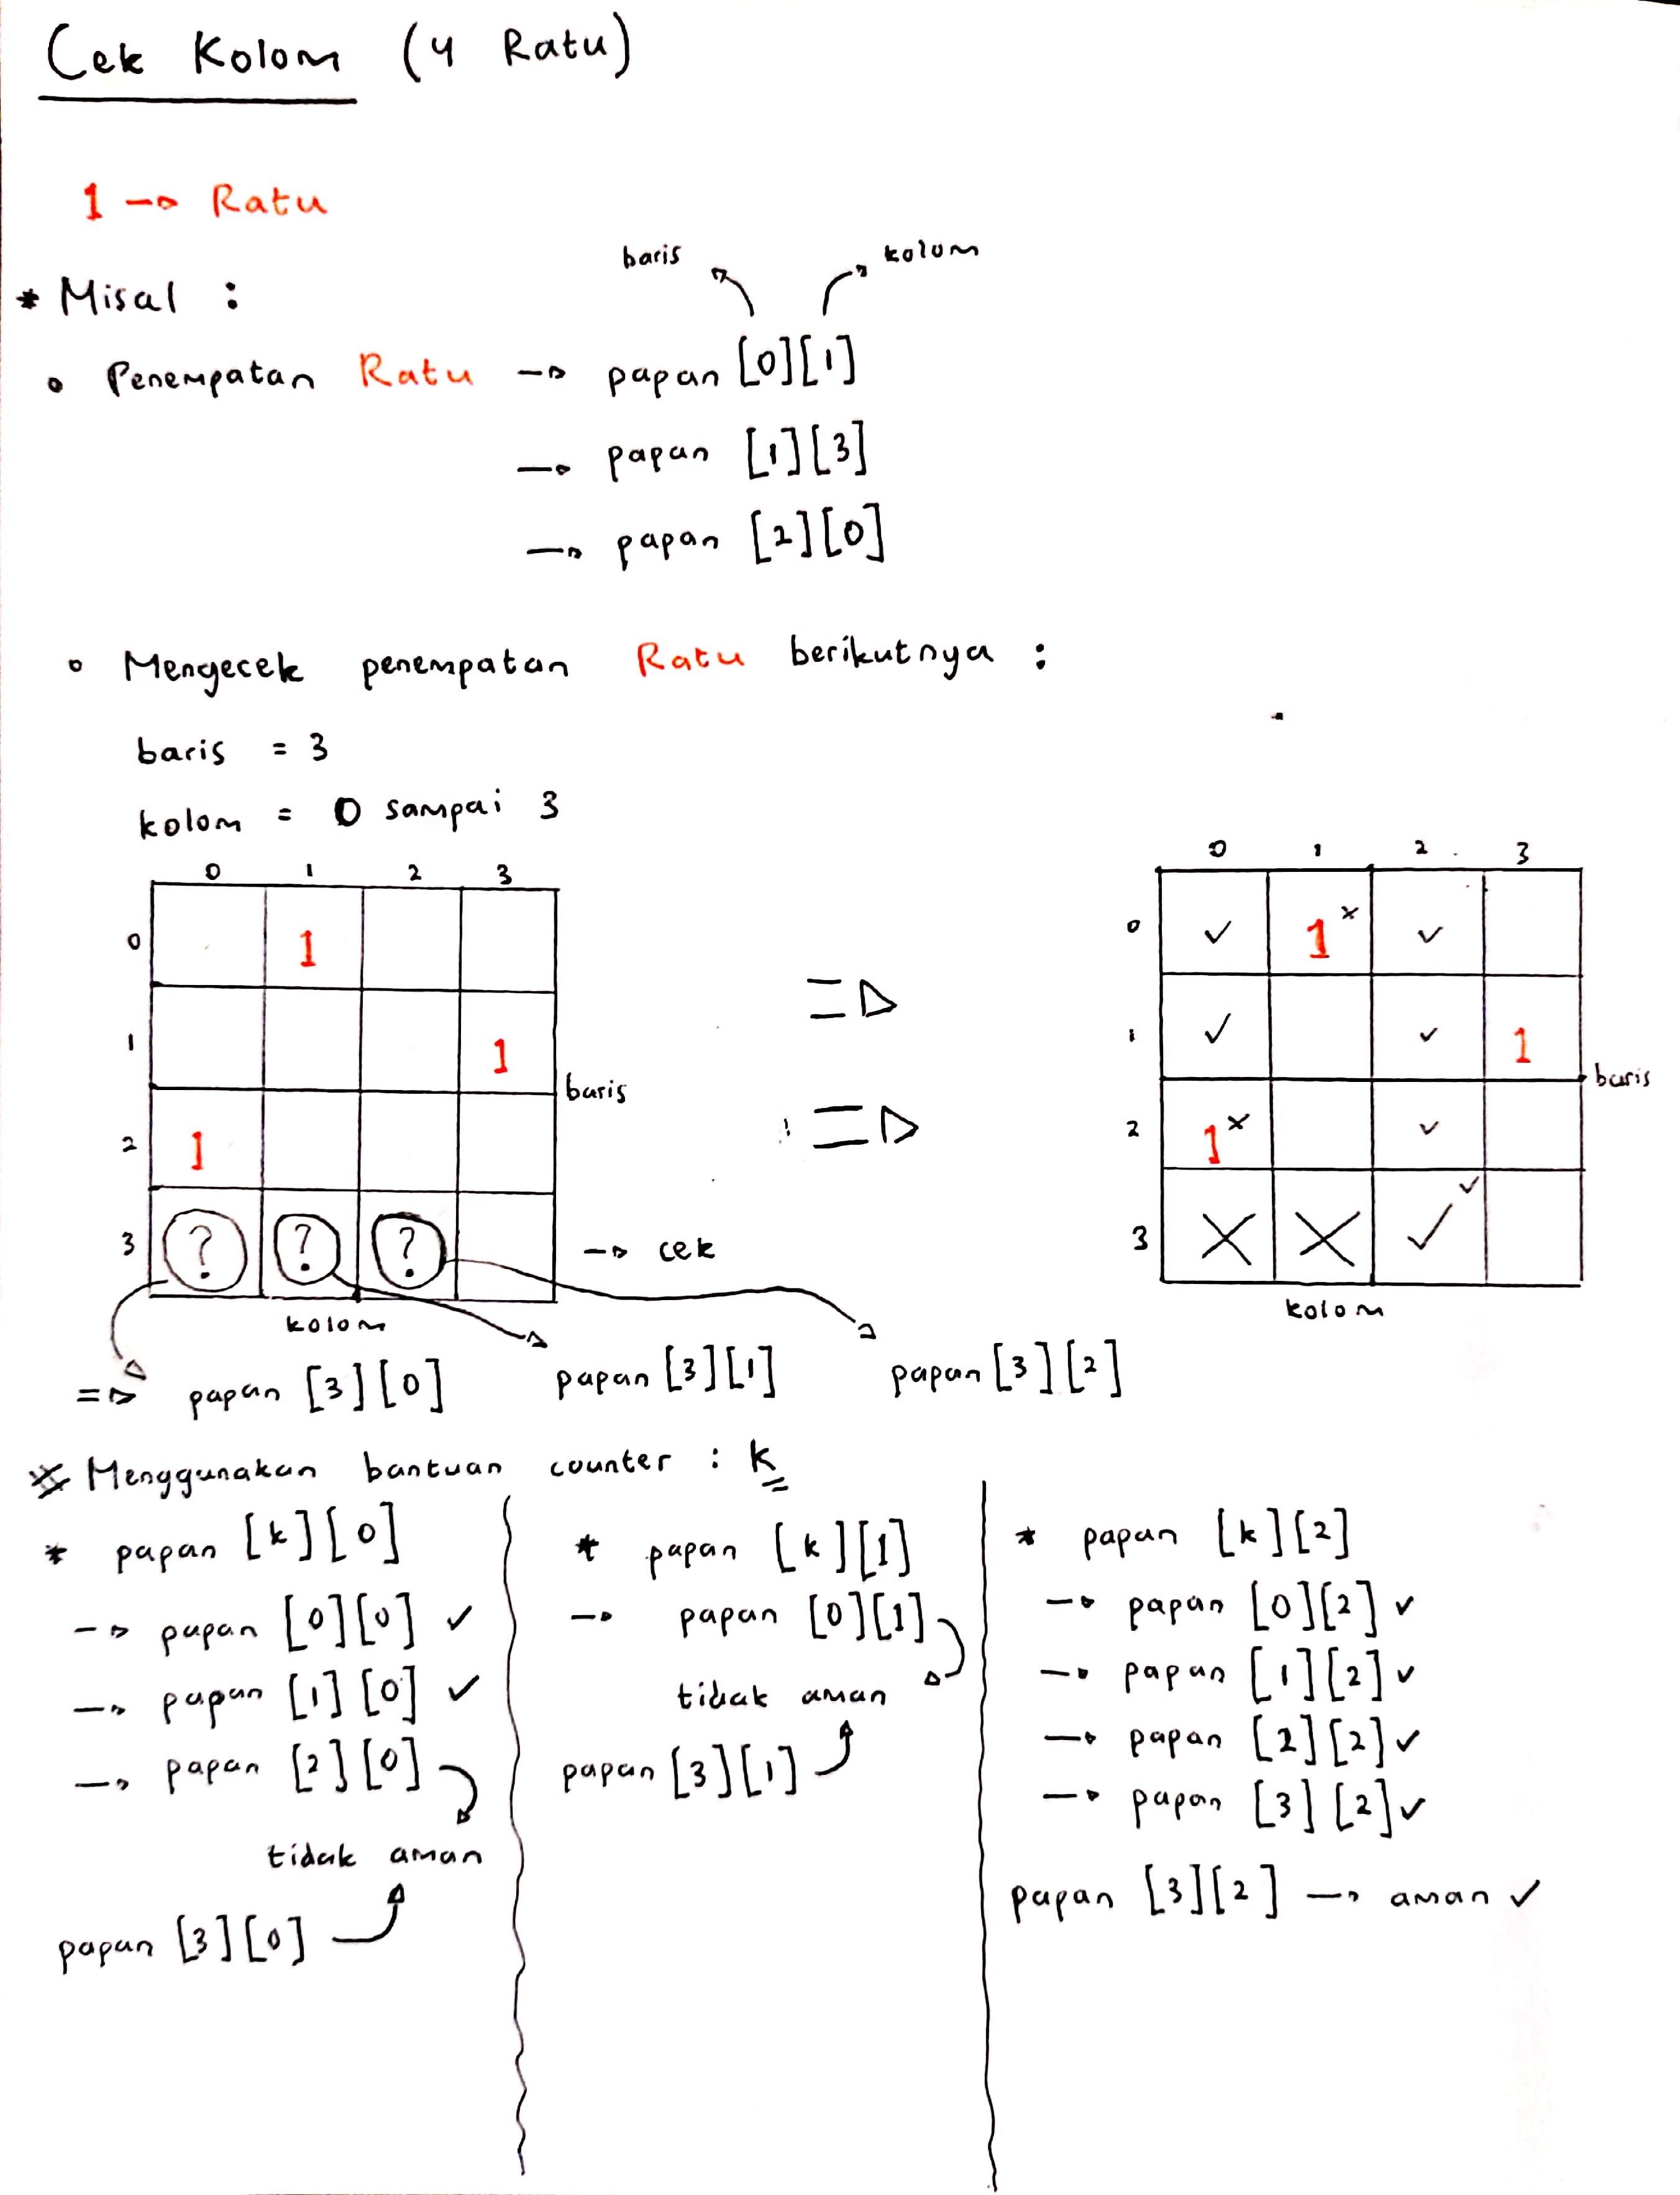 Cek Kolom (4 Ratu)
1 → Ratu
baris kolom
* Misal :
• Penempatan Ratu → papan [0][1]
→ papan [1][3]
→ papan [2][0]
• Mengecek penempatan Ratu berikutnya :
baris = 3
kolom = 0 sampai 3
0 1 2 3
0 1
1 1
baris
2 1
3 ? ? ? → cek
kolom
⇒
⇒
0 1 2 3
0 ✓ 1 x ✓
1 ✓ ✓ 1
baris
2 1 x ✓
3 X X ✓ ✓
kolom
⇒ papan [3][0] papan [3][1] papan [3][2]
* Menggunakan bantuan counter : k
* papan [k][0]
→ papan [0][0] ✓
→ papan [1][0] ✓
→ papan [2][0]
tidak aman
papan [3][0]
* papan [k][1]
→ papan [0][1]
tidak aman
papan [3][1]
* papan [k][2]
→ papan [0][2] ✓
→ papan [1][2] ✓
→ papan [2][2] ✓
→ papan [3][2] ✓
papan [3][2] → aman ✓